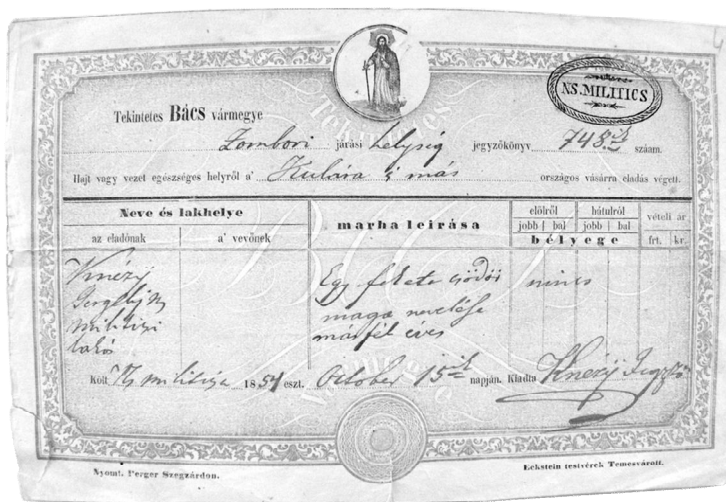 NS. MILITICS
Tekintetes Bács vármegye
Zombori járási helység jegyzőkönyv 748ik szám.
Hajt vagy vezet egészséges helyről a' Kulára s más országos vásárra eladás végett.
Neve és lakhelye marha leirása elölről hátulról vételi ár
az eladónak a' vevőnek jobb bal jobb bal frt. kr.
bélyege
Knézy Egy fekete csődör nincs
Gergely N maga nevelése
militisi másfél éves
lakó
Költ Ns militisa 1854 eszt. October 15ik napján. Kiadta Knézy Jegyző
Nyomt. Perger Szegzárdon. Eckstein testvérek Temesvárott.